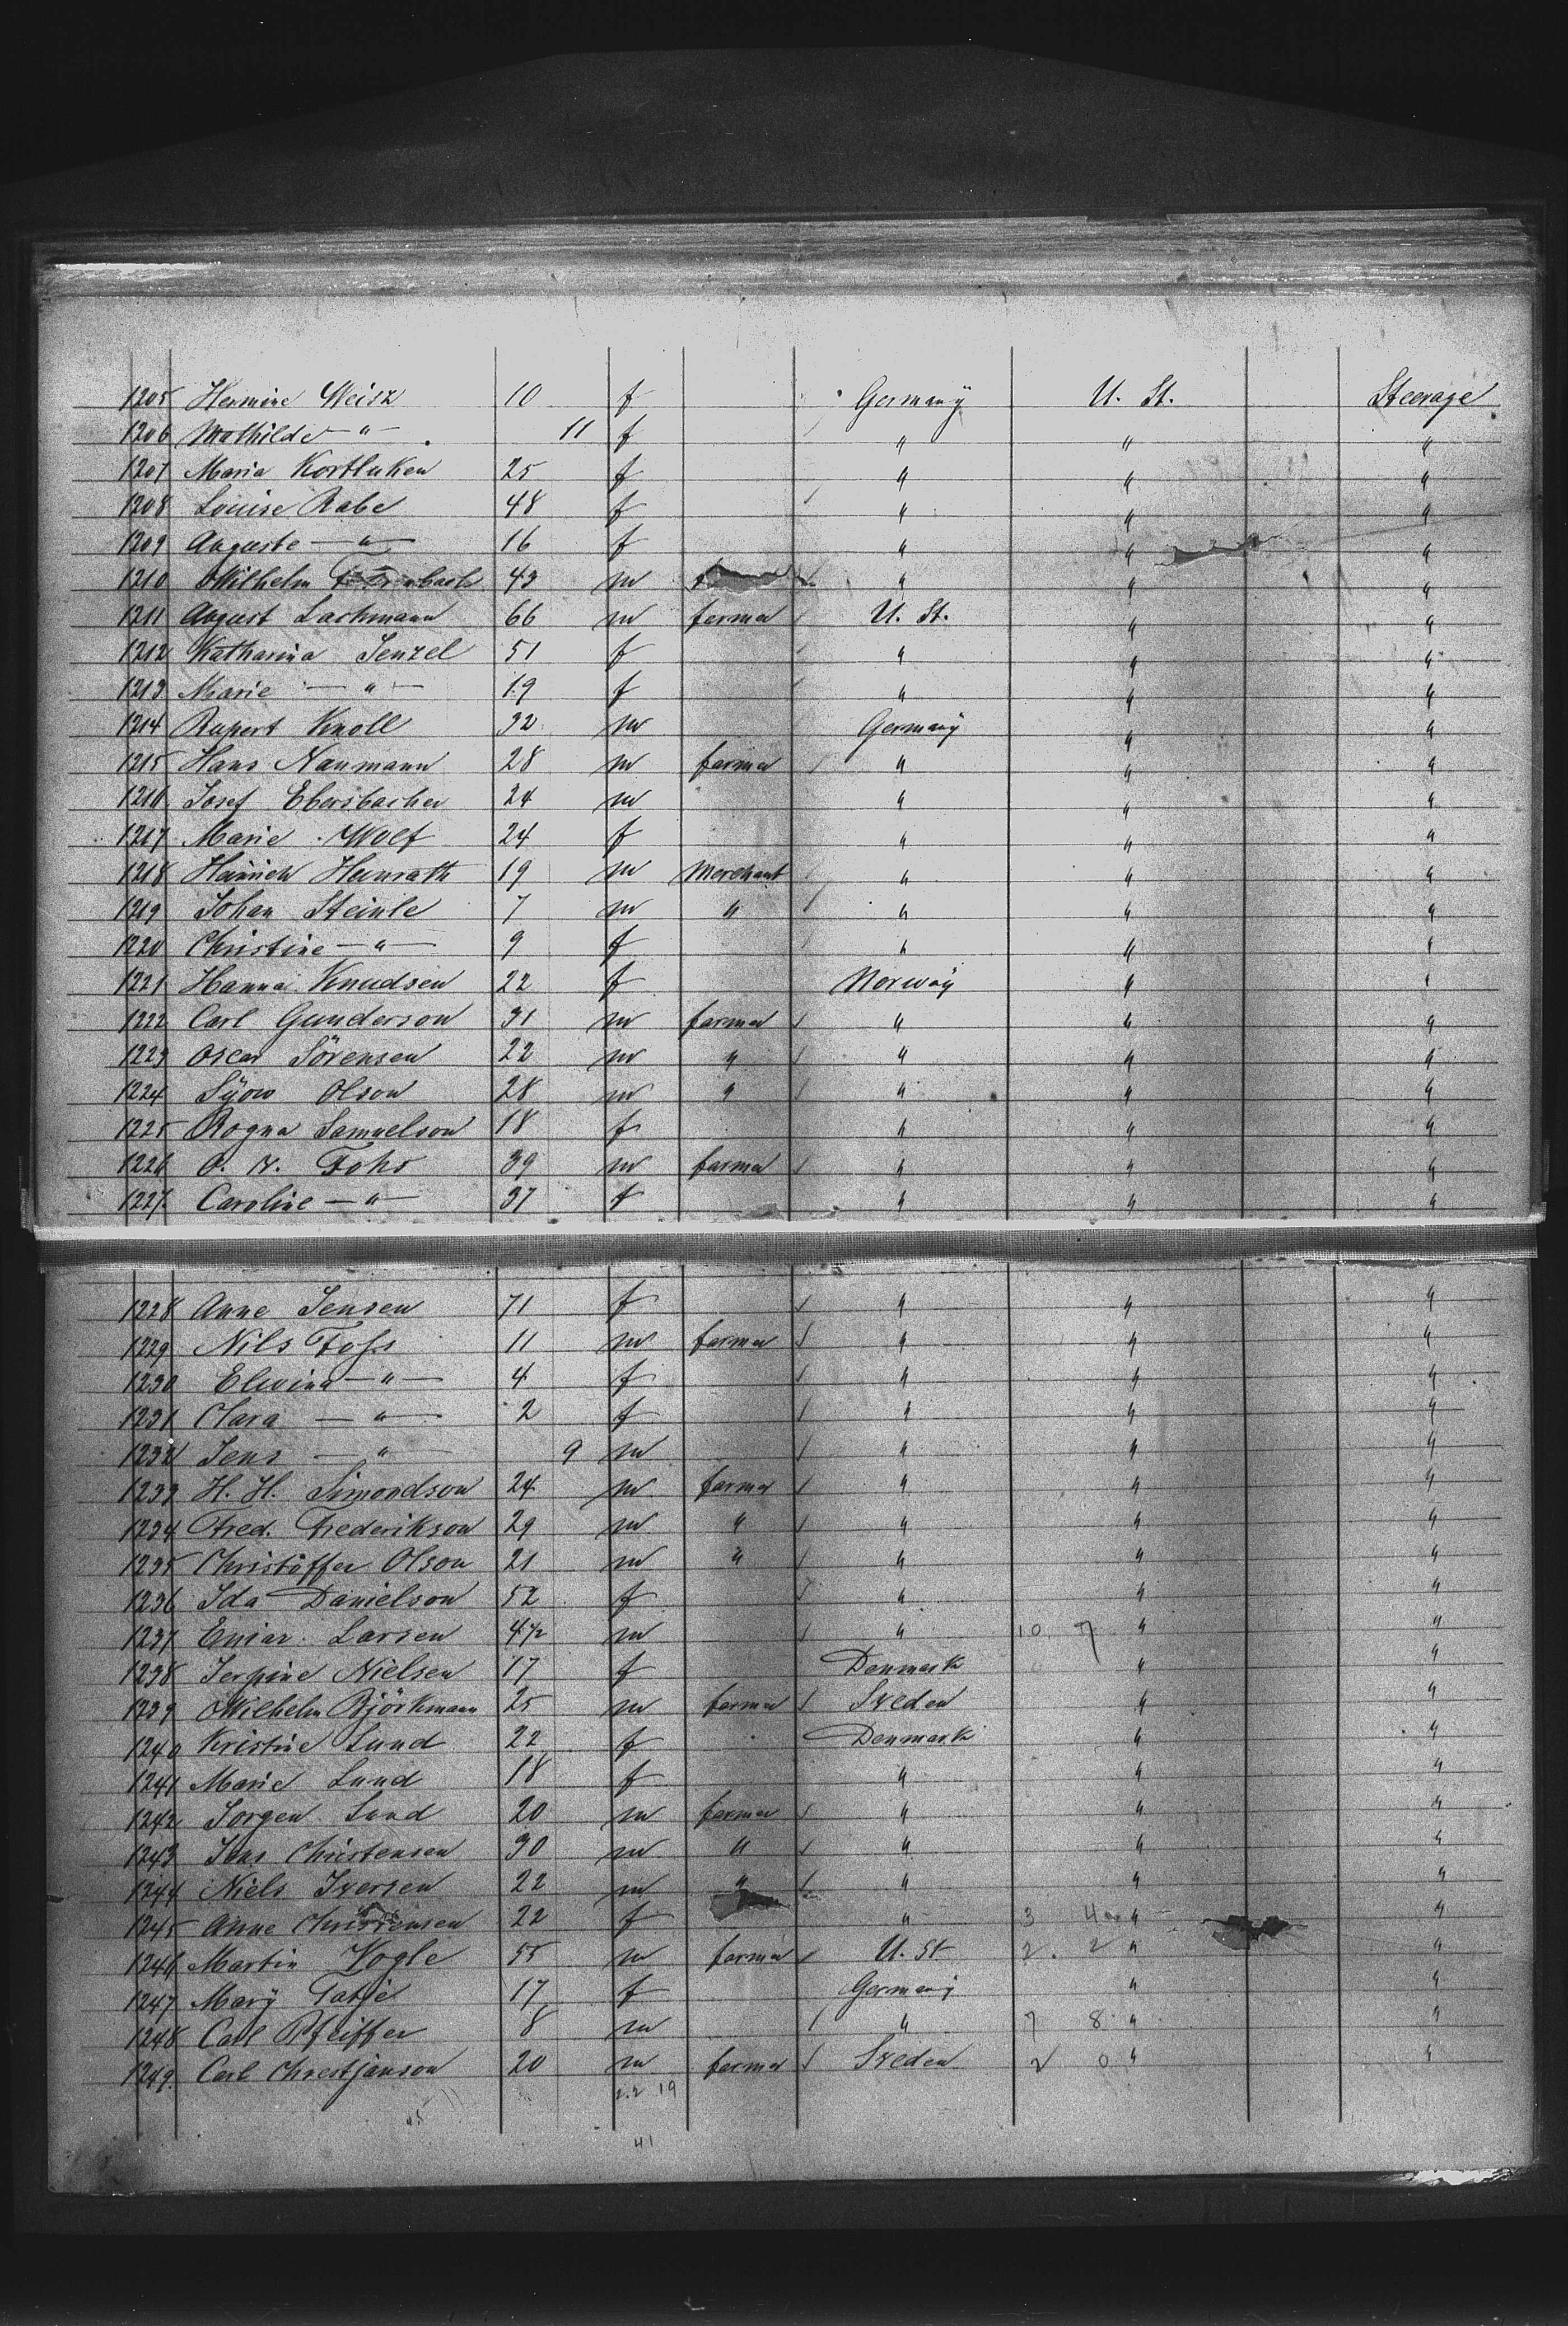 1205 Hermine Weisz 10 f Germany U. St. Steerage
1206 Mathilde — " — 11 f " " "
1207 Maria Kortluken 25 f " " "
1208 Louise Rabe 48 f " " "
1209 Auguste — " — 16 f " " "
1210 Wilhelm 43 m " " "
1211 August Lachmann 66 m farmer U. St. " "
1212 Katharina Jenzel 51 f " " "
1213 Marie — " — 19 f " " "
1214 Rupert Knoll 32 m Germany " "
1215 Hans Naumann 28 m farmer " " "
1216 Josef Ebersbacher 24 m " " "
1217 Marie Wolf 24 f " " "
1218 Heinrich Heinrath 19 m Merchant " " "
1219 Johan Steinle 7 m " " " "
1220 Christine — " — 9 f " " "
1221 Hanna Knudsen 22 f Norway " "
1222 Carl Gunderson 31 m farmer " " "
1223 Oscar Sörensen 22 m " " " "
1224 Syow Olson 28 m " " " "
1225 Rogna Samuelson 18 f " " "
1226 O. N. Fohs 39 m farmer " " "
1227. Caroline — " — 37 f " " "
1228 Anne Jensen 71 f " " "
1229 Nils Foss 11 m farmer " " "
1230 Elwina — " — 4 f " " "
1231 Clara — " — 2 f " " "
1232 Jens — " — 9 m " " "
1233 H. H. Simondson 24 m farmer " " "
1234 Fred. Frederikson 29 m " " " "
1235 Christoffer Olson 21 m " " " "
1236 Ida Danielson 52 f " " "
1237 Einar Larsen 4½ m " 10 7 " "
1238 Jerpine Nielsen 17 f Denmark " "
1239 Wilhelm Björkmann 25 m farmer Sveden " "
1240 Kristine Lund 22 f Denmark " "
1241 Marie Lund 18 f " " "
1242 Jorgen Lund 20 m farmer " " "
1243 Jens Christensen 30 m " " " "
1244 Niels Iversen 22 m " " " "
1245 Anne Christensen 22 f " 3 4 " "
1246 Martin Vogle 55 m farmer U. St 2. 2 " "
1247 Mary Tatje 17 f Germany " "
1248 Carl Pfeiffer 8 m " 7 8 " "
1249. Carl Chrestjanson 20 m farmer Sveden 2 0 " "
2.2 19
45
41